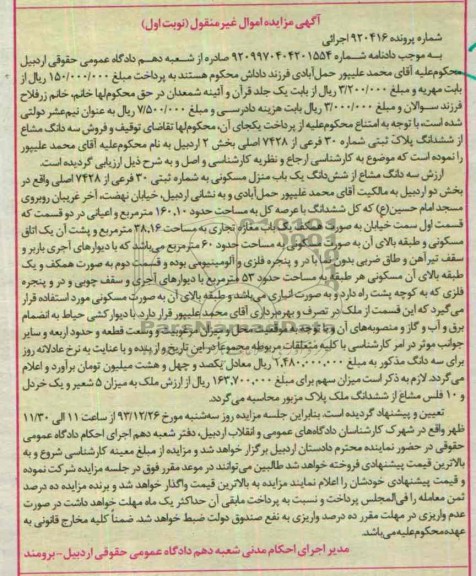 آگهی مزایده اموال غیر منقول (نوبت اول)
شماره پرونده ۹۲۰۴۱۶ اجرائی
به موجب دادنامه شماره ۹۲۰۹۹۷۰۴۰۴۲۰۱۵۵۴ صادره از شعبه دهم دادگاه عمومی حقوقی اردبیل
محکوم‌علیه آقای محمد علیپور حمل‌آبادی فرزند داداش محکوم هستند به پرداخت مبلغ ۱۵۰/۰۰۰/۰۰۰ ریال از
بابت مهریه و مبلغ ۳/۲۰۰/۰۰۰ ریال از بابت یک جلد قرآن و آئینه شمعدان در حق محکوم‌لها خانم، خانم زرفلاح
فرزند سولان و مبلغ ۳/۰۰۰/۰۰۰ ریال بابت هزینه دادرسی و مبلغ ۷/۵۰۰/۰۰۰ ریال به عنوان نیم‌عشر دولتی
شده است، با توجه به امتناع محکوم‌علیه از پرداخت یکجای آن، محکوم‌لها تقاضای توقیف و فروش سه دانگ مشاع
از ششدانگ پلاک ثبتی شماره ۳۰ فرعی از ۷۴۲۸ اصلی بخش ۲ اردبیل به نام محکوم‌علیه آقای محمد علیپور
را نموده است که موضوع به کارشناسی ارجاع و نظریه کارشناسی و اصل و به شرح ذیل ارزیابی گردیده است.
ارزش سه دانگ مشاع از شش‌دانگ یک باب منزل مسکونی به شماره ثبتی ۳۰ فرعی از ۷۴۲۸ اصلی واقع در
بخش دو اردبیل به مالکیت آقای محمد علیپور حمل‌آبادی و به نشانی اردبیل، خیابان نهضت، آخر غریبان روبروی
مسجد امام حسین(ع) که کل ششدانگ با عرصه کل به مساحت حدود ۱۶۰,۱۰ مترمربع و اعیانی در دو قسمت که
قسمت اول سمت خیابان به صورت همکف یک باب مغازه تجاری به مساحت ۳۸,۱۶ مترمربع و پشت آن یک اتاق
مسکونی و طبقه بالای آن به صورت مسکونی به مساحت حدود ۶۰ مترمربع می‌باشد که با دیوارهای آجری باربر و
سقف تیرآهن و طاق ضربی بدون نما با در و پنجره فلزی و آلومینیومی بوده و قسمت دوم به صورت همکف و یک
طبقه بالای آن مسکونی هر طبقه به مساحت حدود ۵۳ مترمربع با دیوارهای آجری و سقف چوبی و در و پنجره
فلزی که به کوچه پشت راه دارد و به صورت انباری می‌باشد و طبقه بالای آن به صورت مسکونی مورد استفاده قرار
می‌گیرد که این قسمت از ملک در تصرف و بهره‌برداری آقای محمد علیپور قرار دارد. با دیوار کشی حیاط به انضمام
برق و آب و گاز و منصوبه‌های آن و با توجه به موقعیت محل و متراژ و وسعت قطعه و حدود اربعه و سایر
جوانب موثر در امر کارشناسی با کلیه متعلقات مربوطه مجموعاً در این تاریخ و از بنده و با عنایت به نرخ عادلانه روز
برای سه دانگ مذکور به مبلغ ۱,۴۸۰,۰۰۰,۰۰۰ ریال معادل یکصد و چهل و هشت میلیون تومان برآورد و اعلام
می‌گردد. لازم به ذکر است میزان سهم برای مبلغ ۱۶۳,۷۰۰,۰۰۰ ریال از ارزش ملک به میزان ۵ شعیر و یک خردل
و ۱۰ فلس مشاع از ششدانگ ملک پلاک مزبور محاسبه می‌گردد.
تعیین و پیشنهاد گردیده است. بنابراین جلسه مزایده روز سه‌شنبه مورخ ۹۳/۱۲/۲۶ از ساعت ۱۱ الی ۱۱/۳۰
ظهر واقع در شهرک کارشناسان دادگاه‌های عمومی و انقلاب اردبیل، دفتر شعبه دهم اجرای احکام دادگاه عمومی
حقوقی در حضور نماینده محترم دادستان اردبیل برگزار خواهد شد و مزایده از مبلغ معینه کارشناسی شروع و به
بالاترین قیمت پیشنهادی فروخته خواهد شد طالبین می‌توانند در موعد مقرر فوق در جلسه مزایده شرکت نموده
و قیمت پیشنهادی خودشان را اعلام نمایند مزایده به بالاترین قیمت واگذار خواهد شد و برنده مزایده ده درصد
ثمن معامله را فی‌المجلس پرداخت و نسبت به پرداخت مابقی آن حداکثر یک ماه مهلت خواهد داشت در صورت
عدم واریزی در مهلت مقرر ده درصد واریزی به نفع صندوق دولت ضبط خواهد شد. ضمناً کلیه مخارج قانونی به
عهده محکوم‌علیه می‌باشد.
مدیر اجرای احکام مدنی شعبه دهم دادگاه عمومی حقوقی اردبیل - برومند